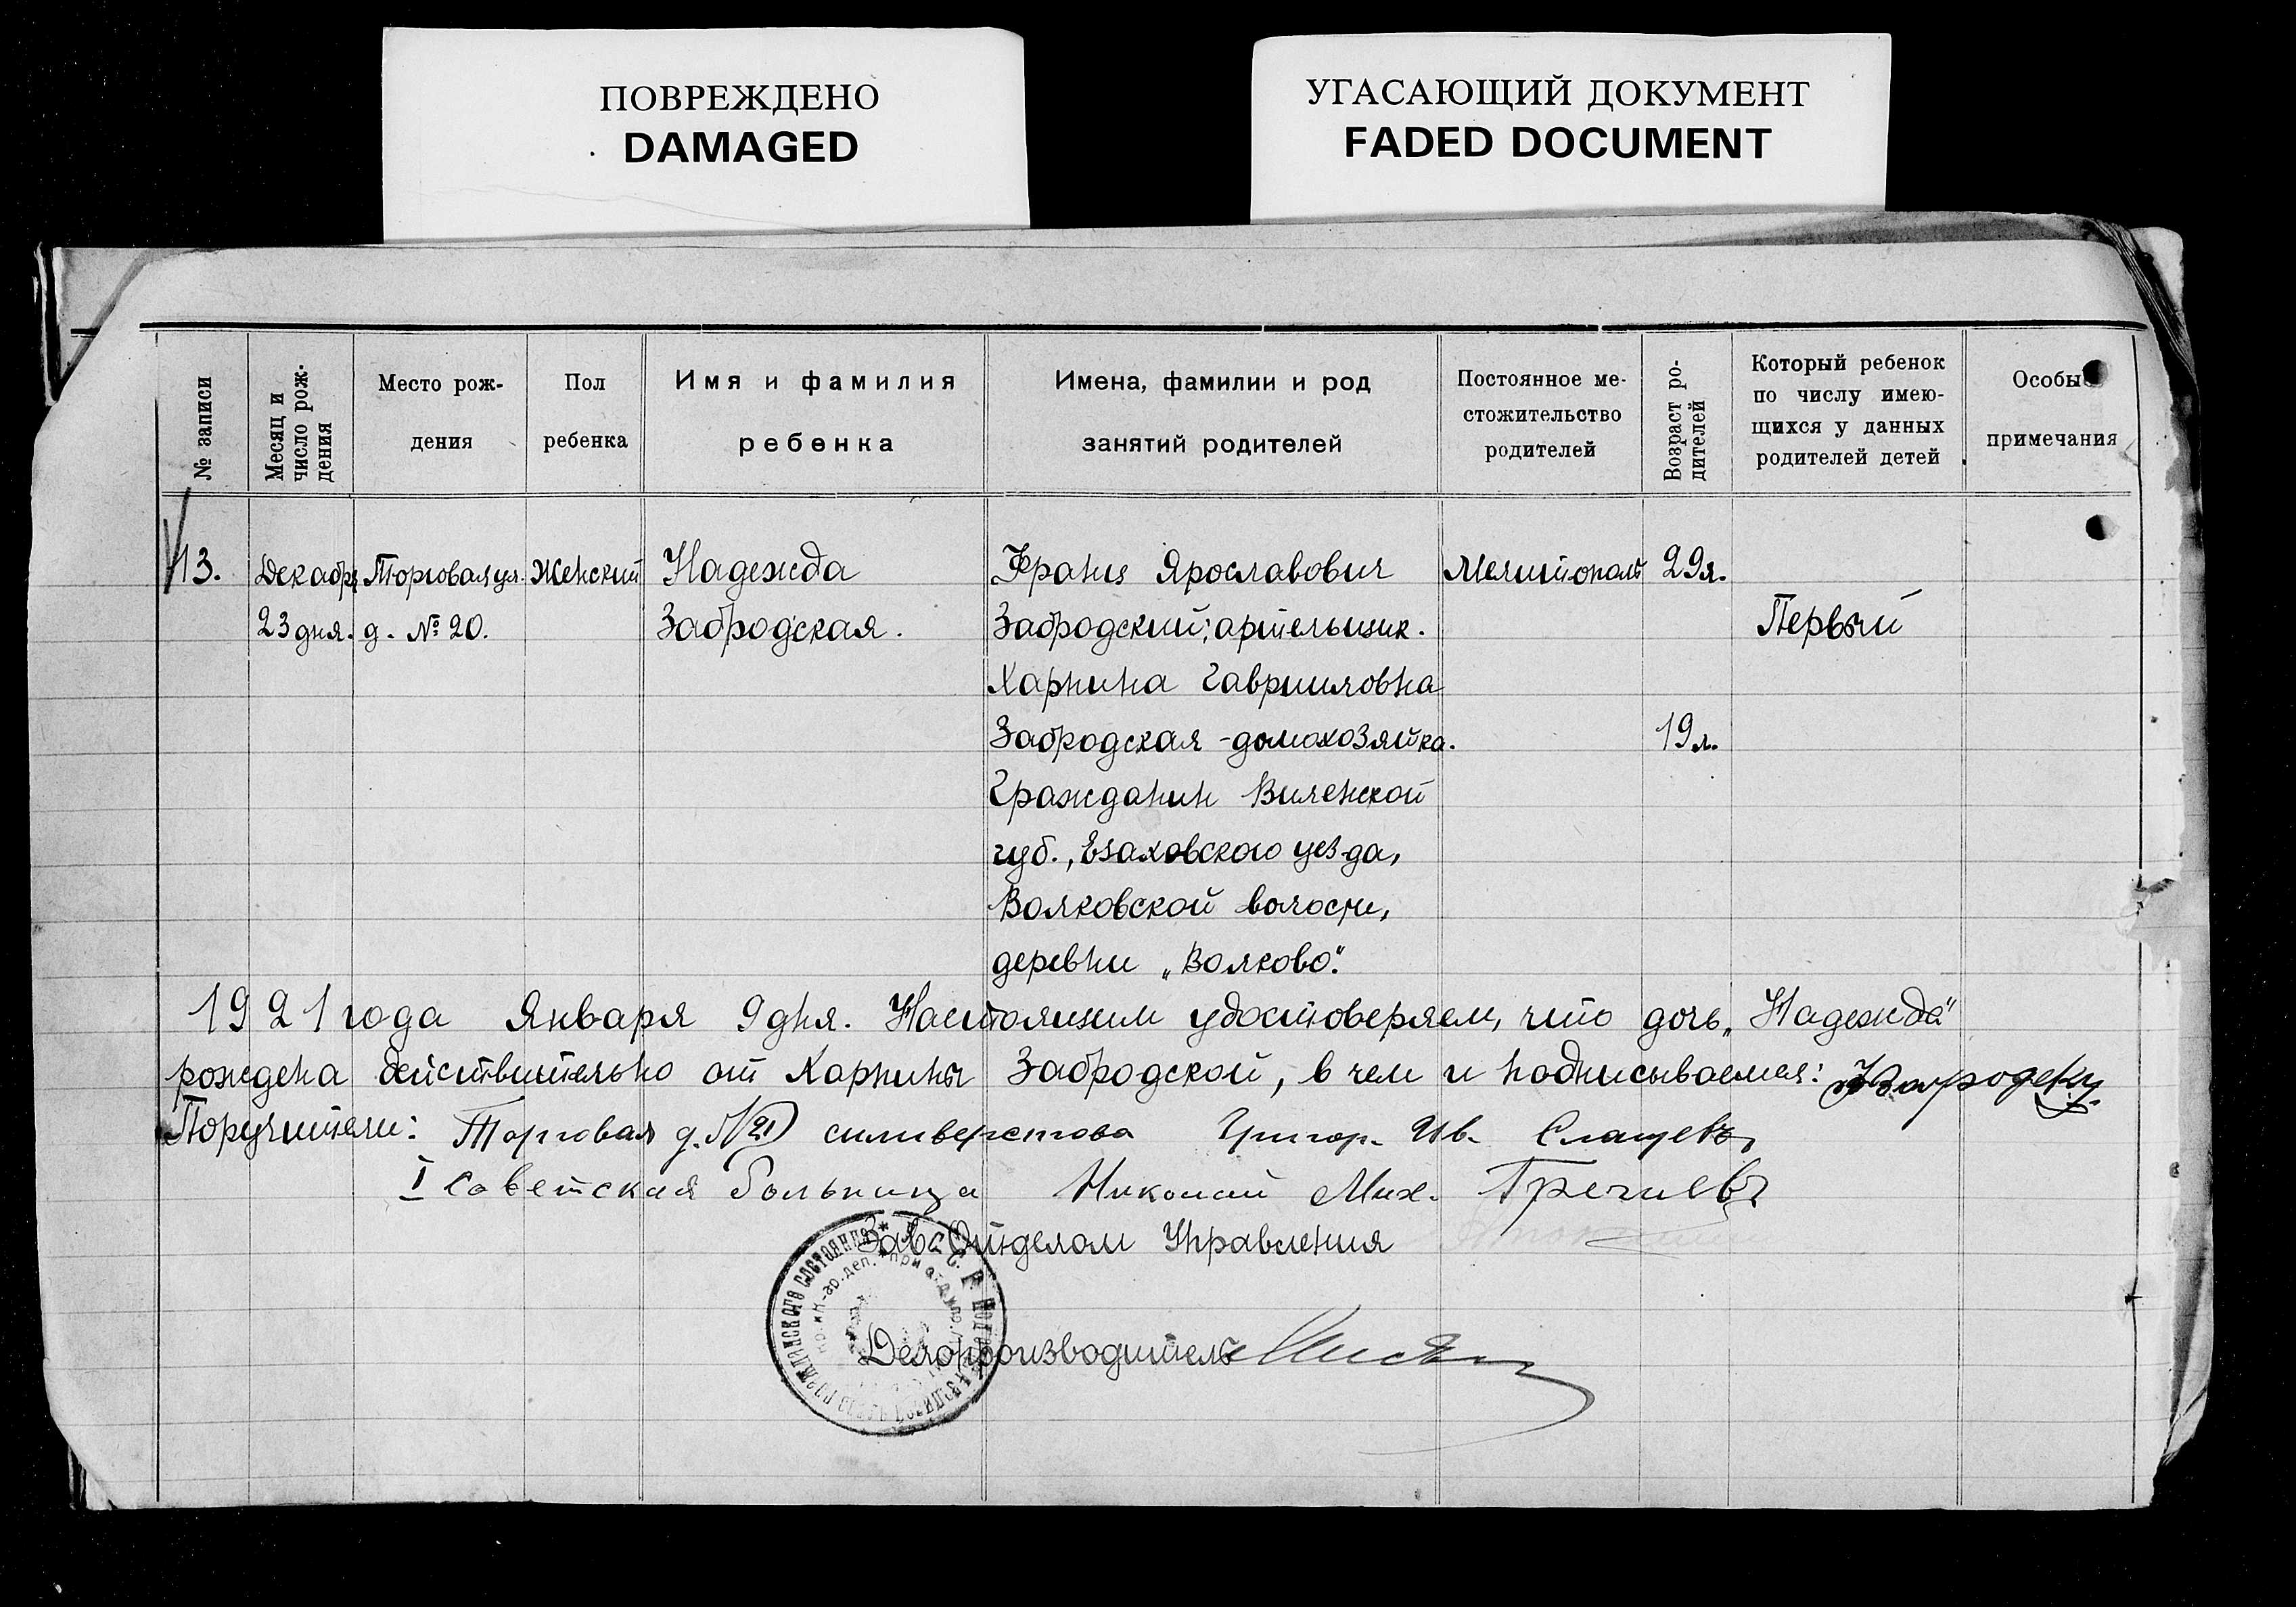 ПОВРЕЖДЕНО
DAMAGED
УГАСАЮЩИЙ ДОКУМЕНТ
FADED DOCUMENT
№ записи
Месяц и число рож-дения
Место рож-
дения
Пол
ребенка
Имя и фамилия
ребенка
Имена, фамилии и род
занятий родителей
Постоянное ме-
стожительство
родителей
Возраст ро-дителей
Который ребенок
по числу имею-
щихся у данных
родителей детей
Особые
примечания
13. Декабря Торговая ул. Женский Надежда Франц Ярославович Мелитополь 29л.
23 дня. д. № 20. Забродская. Забродский; артельщик. Первый
Харпина Гаврииловна
Забродская - домохозяйка. 19л.
Гражданин Виленской
губ., Езаховского уезда,
Волковской волости,
деревни „Волково".
1921 года Января 9 дня. Настоящим удостоверяем, что дочь „Надежда"
рождена действительно от Харпины Забродской, в чем и подписываемся:
Поручители: Торговая д. № 21 силиверстова Григор. Ив. Слащевъ,
I Советская больница Николай Мих. Гречневъ
Зав. Отделом Управления
Делопроизводитель
гражданского состояния